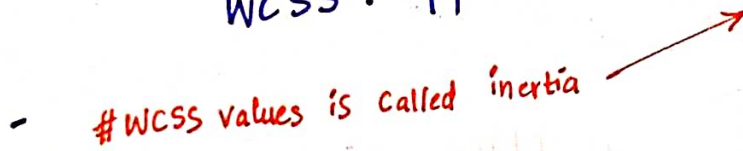 WCSS :
- #WCSS values is called inertia